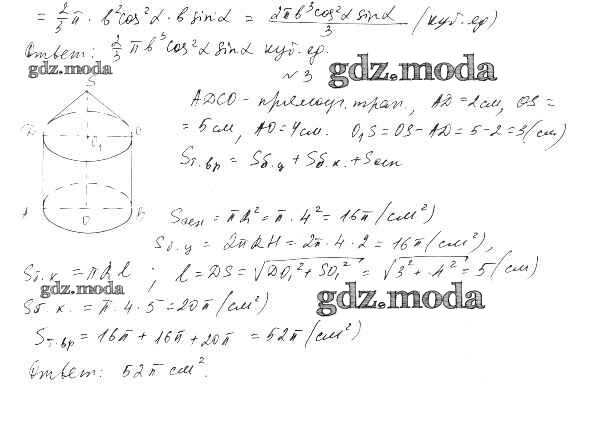 = 2/3 π · b²cos²α · b sinα = 2πb³cos²α sinα / 3 (куб. ед)
Ответ: 2/3 πb³cos²α sinα куб. ед.
gdz.moda
N 3 gdz.moda
S
ADCO - прямоуг. трап, AD = 2 см, OS =
D O₁ C
= 5 см, AO = 4 см. O₁S = OS - AD = 5 - 2 = 3 (см)
Sт.вр = Sб.ц + Sб.к. + Sосн
A O B
Sосн = πR² = π · 4² = 16π (см²)
Sб.ц = 2πRH = 2π · 4 · 2 = 16π (см²),
Sб.к = πRl ; l = DS = √DO₁² + SO₁² = √3² + 4² = 5 (см)
gdz.moda gdz.moda
Sб.к. = π · 4 · 5 = 20π (см²)
Sт.вр = 16π + 16π + 20π = 52π (см²)
Ответ: 52π см².